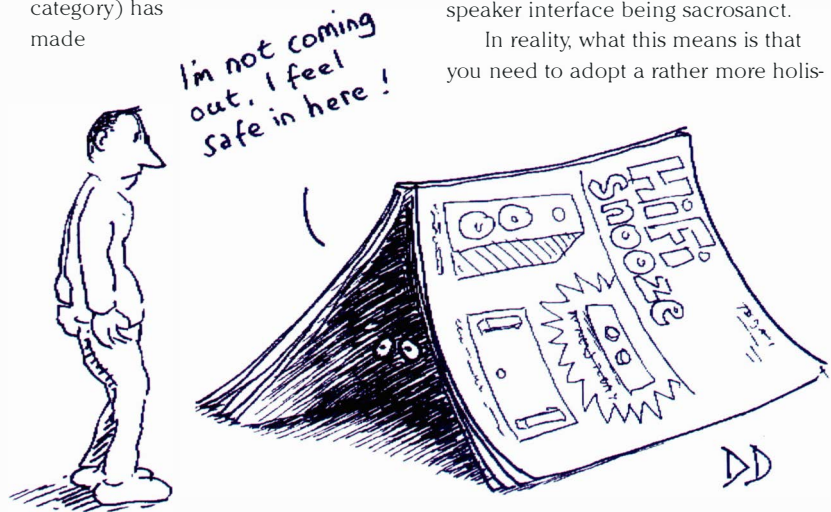 category) has
made
speaker interface being sacrosanct.
In reality, what this means is that
you need to adopt a rather more holis-
I'm not coming
out. I feel
safe in here !
HiFi
Snooze
DD